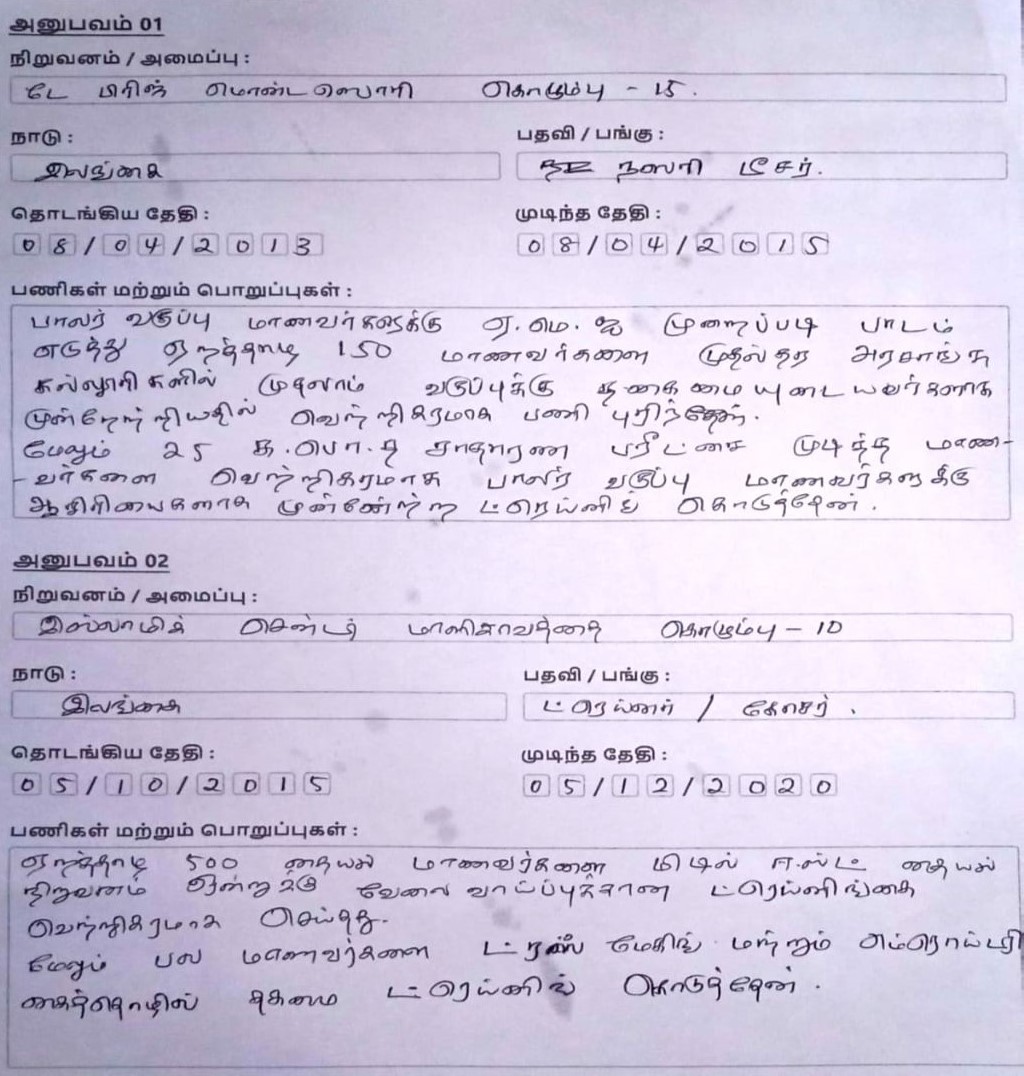 அனுபவம் 01
நிறுவனம் / அமைப்பு :
டே பிரிஜ் மொண்டஸொரி கொழும்பு - 15.
நாடு :
பதவி / பங்கு :
இலங்கை
நஸரி டீசர்.
தொடங்கிய தேதி :
முடிந்த தேதி :
08/04/2013
08/04/2015
பணிகள் மற்றும் பொறுப்புகள் :
பாலர் வகுப்பு மாணவர்களுக்கு ஏ.மெ.ஐ முறைப்படி பாடம்
எடுத்து ஏறத்தாழ 150 மாணவர்களை முதல்தர அரசாங்க
கல்லூரிகளில் முதலாம் வகுப்புக்கு தகைமையுடையவர்களாக
முன்றேற்றியதில் வெற்றிகரமாக பணி புரிந்தேன்.
மேலும் 25 க.பொ.த சாதாரண பரீட்சை முடித்த மாண-
-வர்களை வெற்றிகரமாக பாலர் வகுப்பு மாணவர்களுக்கு
ஆசிரியைகளாக முன்னேற்ற ட்ரெய்னிங் கொடுத்தேன்.
அனுபவம் 02
நிறுவனம் / அமைப்பு :
இஸ்லாமிக் சென்டர் மாளிகாவத்தை கொழும்பு - 10
நாடு :
பதவி / பங்கு :
இலங்கை
ட்ரெய்னர் / கோசர்.
தொடங்கிய தேதி :
முடிந்த தேதி :
05/10/2015
05/12/2020
பணிகள் மற்றும் பொறுப்புகள் :
ஏறத்தாழ 500 தையல் மாணவர்களை மிடில் ஈஸ்ட் தையல்
நிறுவனம் ஒன்றுக்கு வேலை வாய்ப்புக்கான ட்ரெய்னிங்கை
வெற்றிகரமாக செய்தது.
மேலும் பல மாணவர்களை ட்ரஸ் மேகிங் மற்றும் எம்ரொய்டரி
கைத்தொழில் தகமை ட்ரெய்னிங் கொடுத்தேன்.